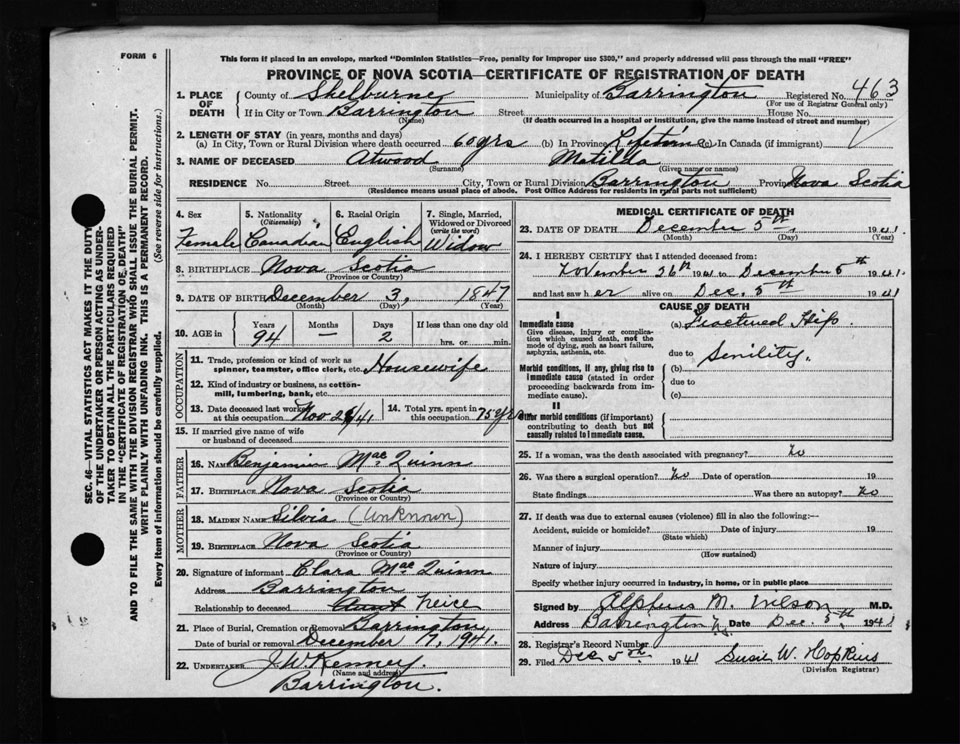 FORM 6
This form if placed in an envelope, marked "Dominion Statistics—Free, penalty for improper use $300," and properly addressed will pass through the mail "FREE"
PROVINCE OF NOVA SCOTIA—CERTIFICATE OF REGISTRATION OF DEATH
1. PLACE OF DEATH { County of Shelburne Municipality of Barrington Registered No. 463
(For use of Registrar General only)
If in City or Town Barrington Street House No.
(Name) (If death occurred in a hospital or institution, give the name instead of street and number)
2. LENGTH OF STAY (in years, months and days)
(a) In City, Town or Rural Division where death occurred 60 yrs (b) In Province Lifetime (c) In Canada (if immigrant)
3. NAME OF DECEASED Atwood Matilda
(Surname) (Given name or names)
RESIDENCE No. Street City, Town or Rural Division Barrington Province Nova Scotia
(Residence means usual place of abode. Post Office Address for residents in rural parts not sufficient)
4. Sex Female
5. Nationality (Citizenship) Canadian
6. Racial Origin English
7. Single, Married, Widowed or Divorced (write the word) Widow
8. BIRTHPLACE Nova Scotia
(Province or Country)
9. DATE OF BIRTH December 3, 1847
(Month) (Day) (Year)
10. AGE in Years 94 Months — Days 2 If less than one day old hrs. or min.
OCCUPATION
11. Trade, profession or kind of work as spinner, teamster, office clerk, etc. Housewife
12. Kind of industry or business, as cotton-mill, lumbering, bank, etc.
13. Date deceased last worked at this occupation Nov 26/41
14. Total yrs. spent in this occupation 75 yrs
15. If married give name of wife or husband of deceased
FATHER
16. NAME Benjamin MacQuinn
17. BIRTHPLACE Nova Scotia
(Province or Country)
MOTHER
18. MAIDEN NAME Silvia (Unknown)
19. BIRTHPLACE Nova Scotia
(Province or Country)
20. Signature of informant Clara MacQuinn
Address Barrington
Relationship to deceased Aunt Neice
21. Place of Burial, Cremation or Removal Barrington
Date of burial or removal December 7, 1941.
22. UNDERTAKER J.W. Kenney.
(Name and address)
Barrington.
MEDICAL CERTIFICATE OF DEATH
23. DATE OF DEATH December 5th, 1941
(Month) (Day) (Year)
24. I HEREBY CERTIFY that I attended deceased from:
November 26th 1941 to December 5th 1941.
and last saw her alive on Dec. 5th 1941
CAUSE OF DEATH
I
Immediate cause
Give disease, injury or complication which caused death, not the mode of dying, such as heart failure, asphyxia, asthenia, etc.
(a) Fractured Hip.
due to Senility.
Morbid conditions, if any, giving rise to immediate cause (stated in order proceeding backwards from immediate cause).
(b)
due to
(c)
II
Other morbid conditions (if important) contributing to death but not causally related to immediate cause.
25. If a woman, was the death associated with pregnancy? No
26. Was there a surgical operation? No Date of operation 19
State findings Was there an autopsy? No
27. If death was due to external causes (violence) fill in also the following:—
Accident, suicide or homicide? Date of injury 19
(State which)
Manner of injury
(How sustained)
Nature of injury
Specify whether injury occurred in industry, in home, or in public place
Signed by Alpheus M. Wilson M.D.
Address Barrington NS Date Dec. 5th 1941
28. Registrar's Record Number
29. Filed Dec 5th 1941 Susie W. Hopkins
(Division Registrar)
SEC. 46—VITAL STATISTICS ACT MAKES IT THE DUTY
OF THE UNDERTAKER OR PERSON ACTING AS UNDER-
TAKER TO OBTAIN ALL THE PARTICULARS REQUIRED
IN THE "CERTIFICATE OF REGISTRATION OF DEATH"
AND TO FILE THE SAME WITH THE DIVISION REGISTRAR WHO SHALL ISSUE THE BURIAL PERMIT.
WRITE PLAINLY WITH UNFADING INK. THIS IS A PERMANENT RECORD.
Every item of information should be carefully supplied. (See reverse side for instructions.)